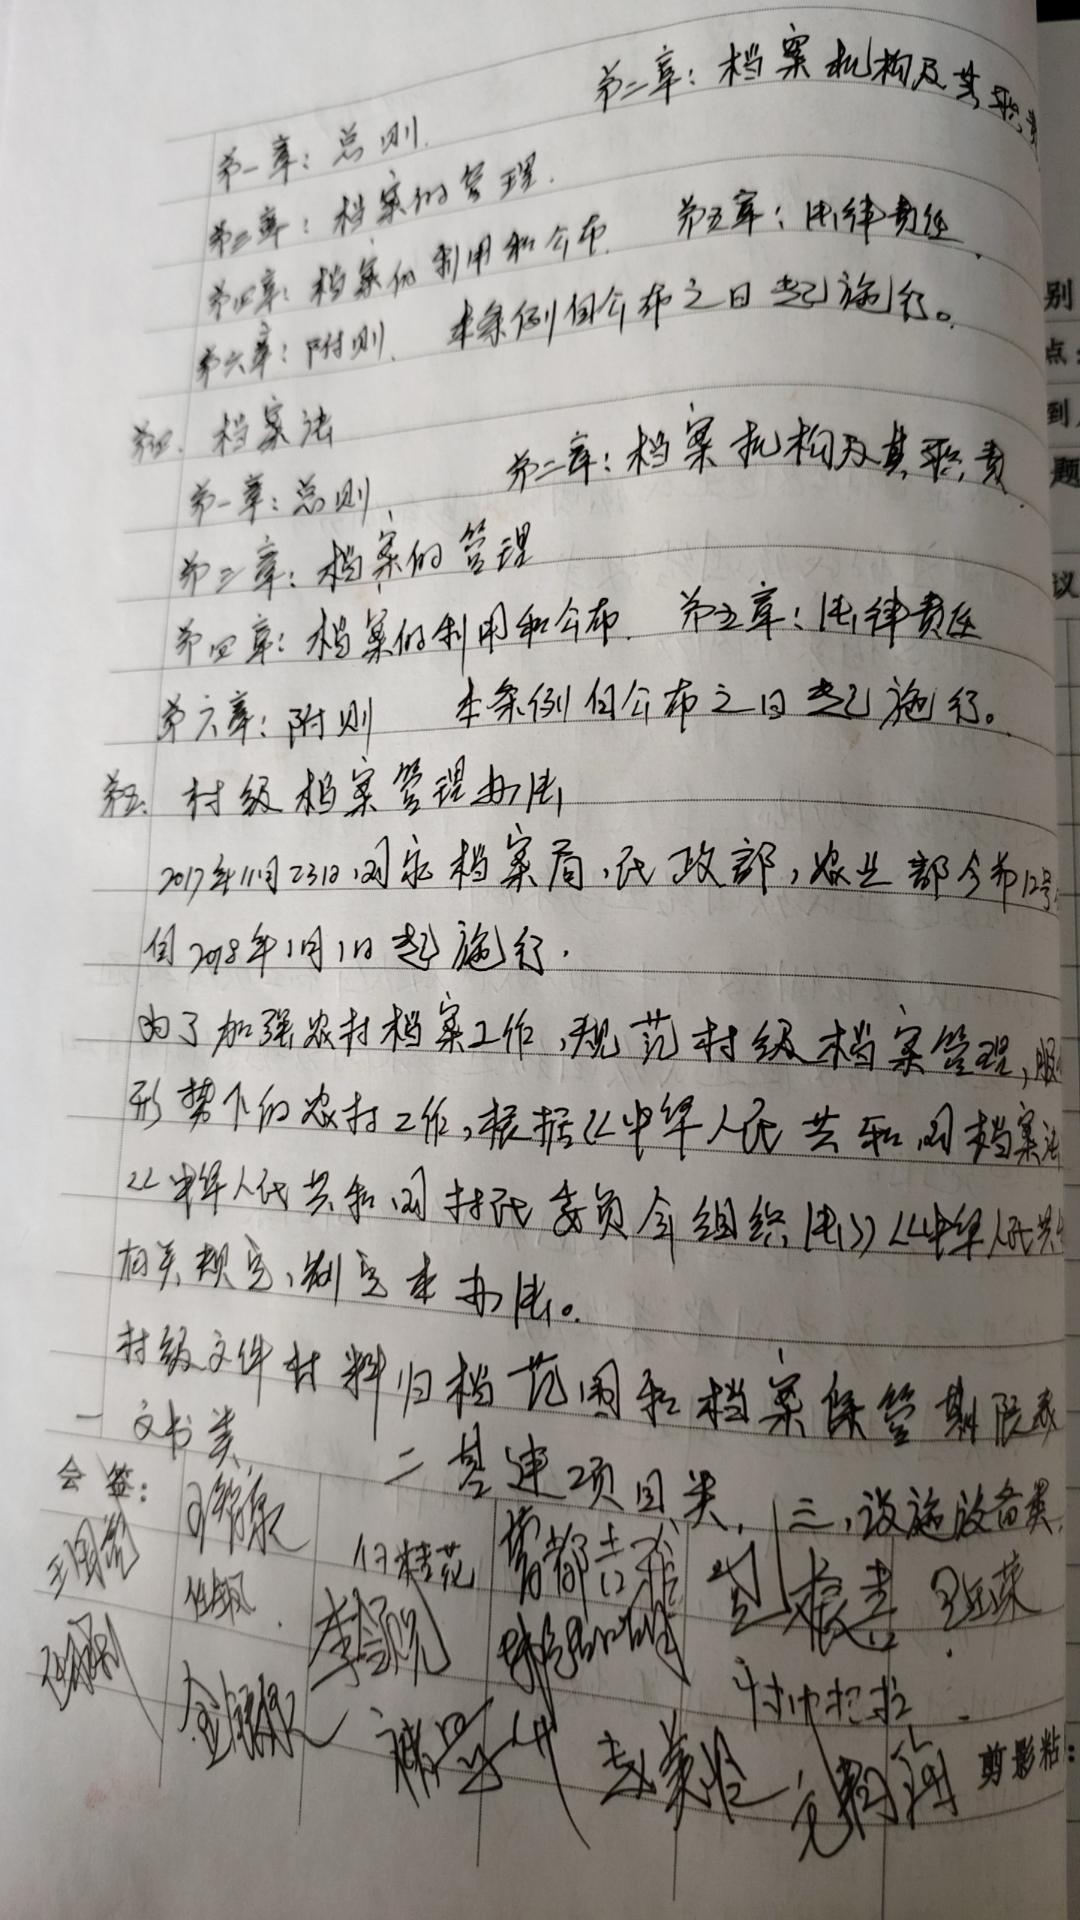 第二章：档案机构及其职责
第一章：总则.
第三章：档案的管理.
第四章：档案的利用和公布. 第五章：法律责任.
第六章：附则. 本条例自公布之日起施行。
第四. 档案法
第一章：总则 第二章：档案机构及其职责
第三章：档案的管理
第四章：档案的利用和公布. 第五章：法律责任
第六章：附则 本条例自公布之日起施行。
第五. 村级档案管理办法
2017年11月23日,国家档案局,民政部,农业部令第12号
自2018年1月1日起施行.
为了加强农村档案工作,规范村级档案管理,服
形势下的农村工作,根据《中华人民共和国档案法
《中华人民共和国村民委员会组织法》《中华人民共
相关规定,制定本办法。
村级文件材料归档范围和档案保管期限表
一 文书类 二 基建项目类, 三,设施设备类,
会 签：
桂花
剪影粘：
别
点：
到
题
议